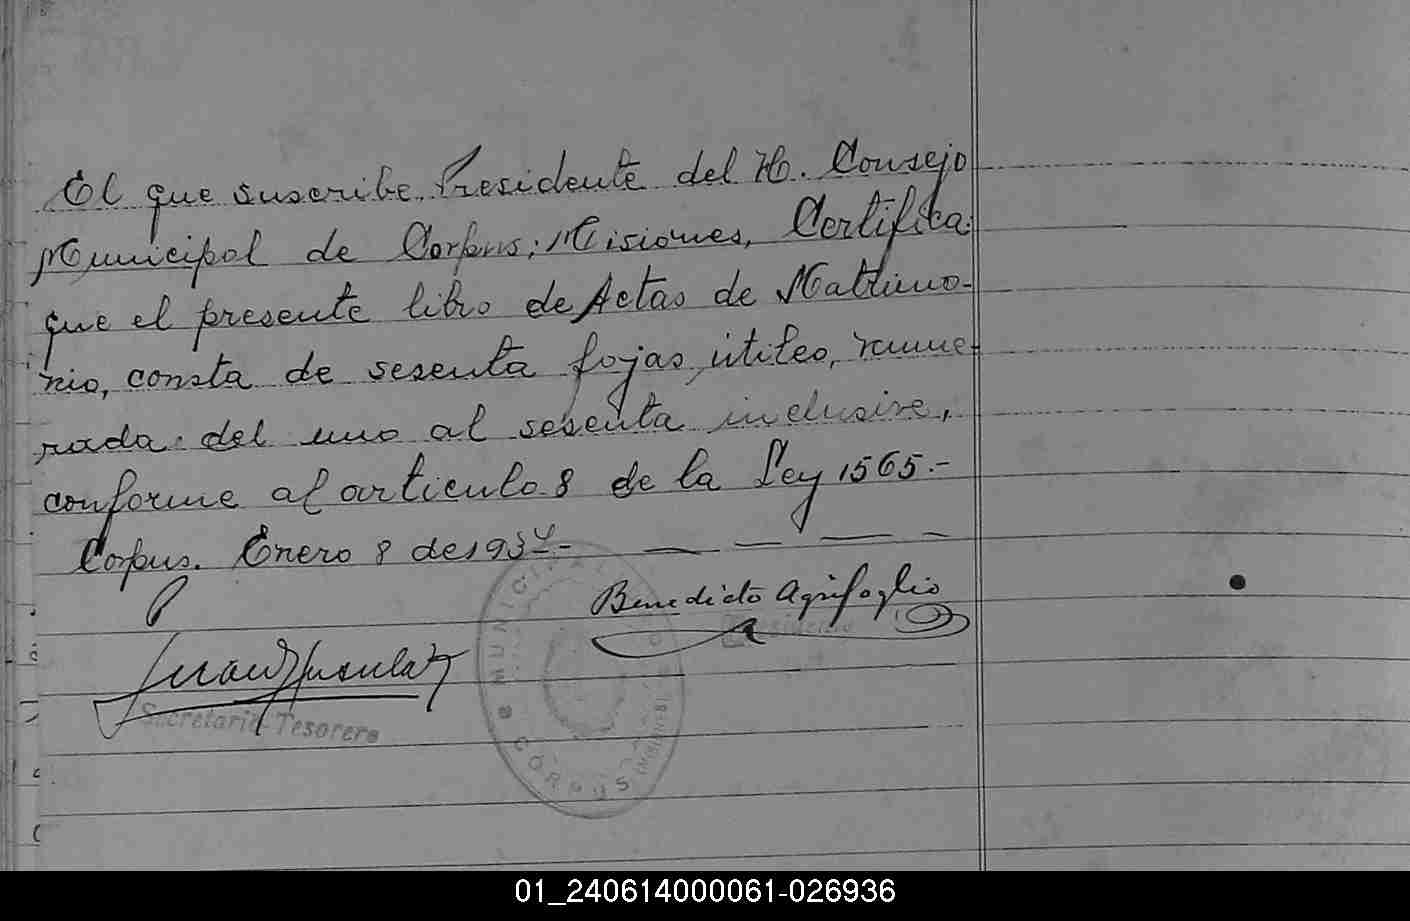 El que suscribe Presidente del H. Consejo
Municipal de Corpus, Misiones, Certifica:
que el presente libro de Actas de Matrimo-
nio, consta de sesenta fojas útiles, nume-
rada del uno al sesenta inclusive,
conforme al articulo 8 de la Ley 1565.-
Corpus. Enero 8 de 193
Benedicto Agrifoglio
Presidente
Juan
Secretario-Tesorero
MUNICIPAL
CORPUS
(MISIONES)
01_240614000061-026936